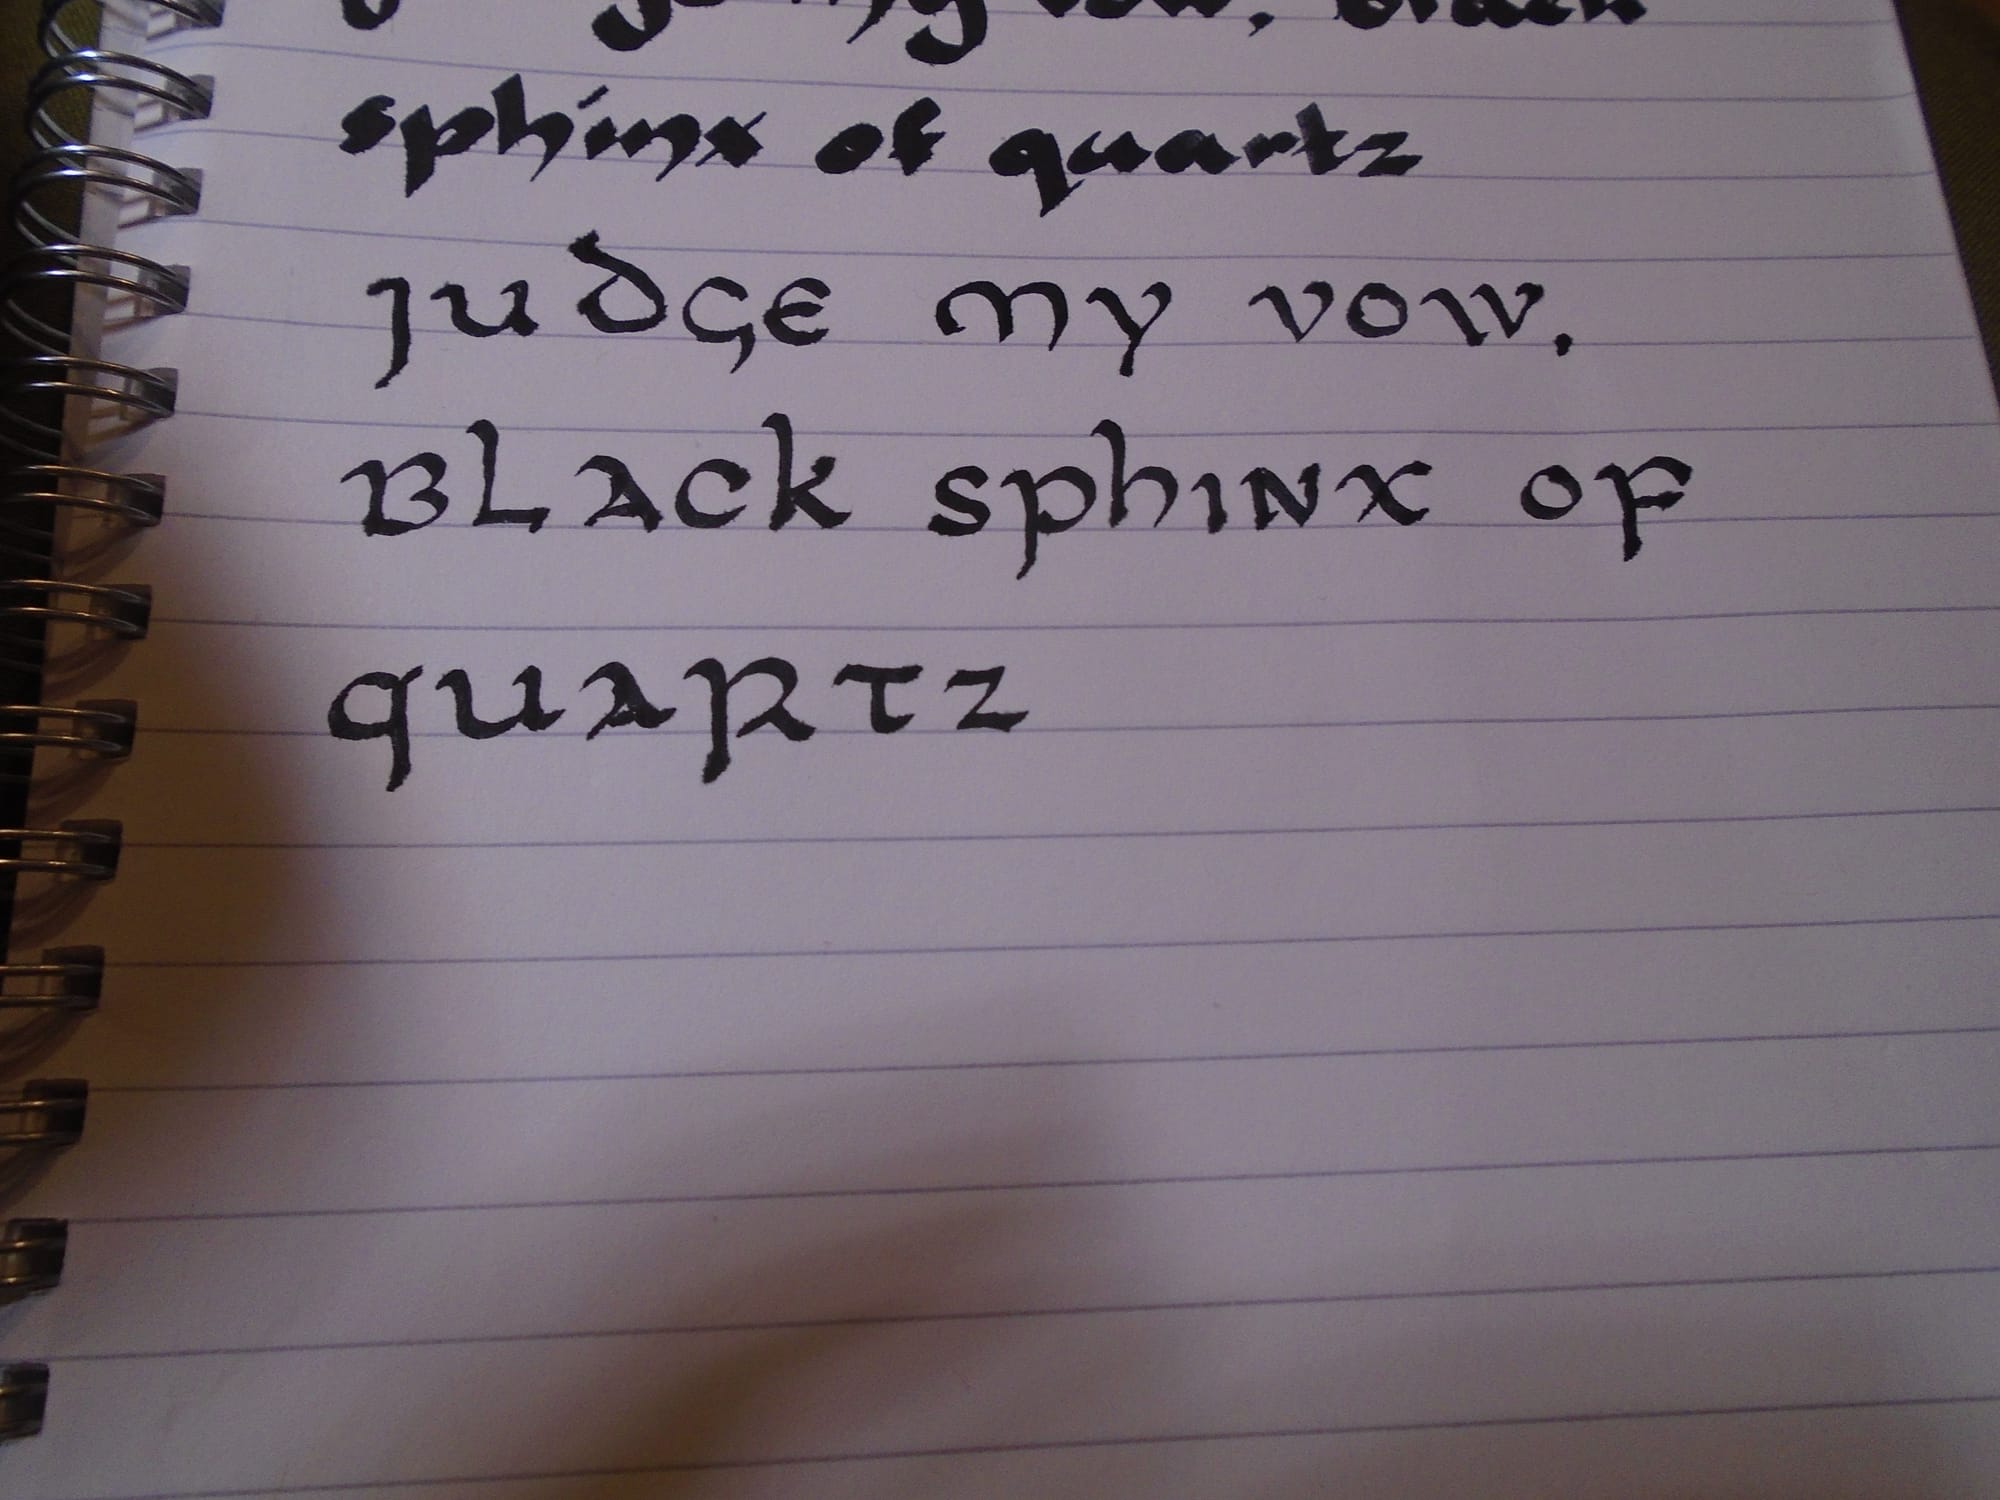 judge my vow, black
sphinx of quartz
JUDGE MY VOW,
BLACK SPHINX OF
QUARTZ